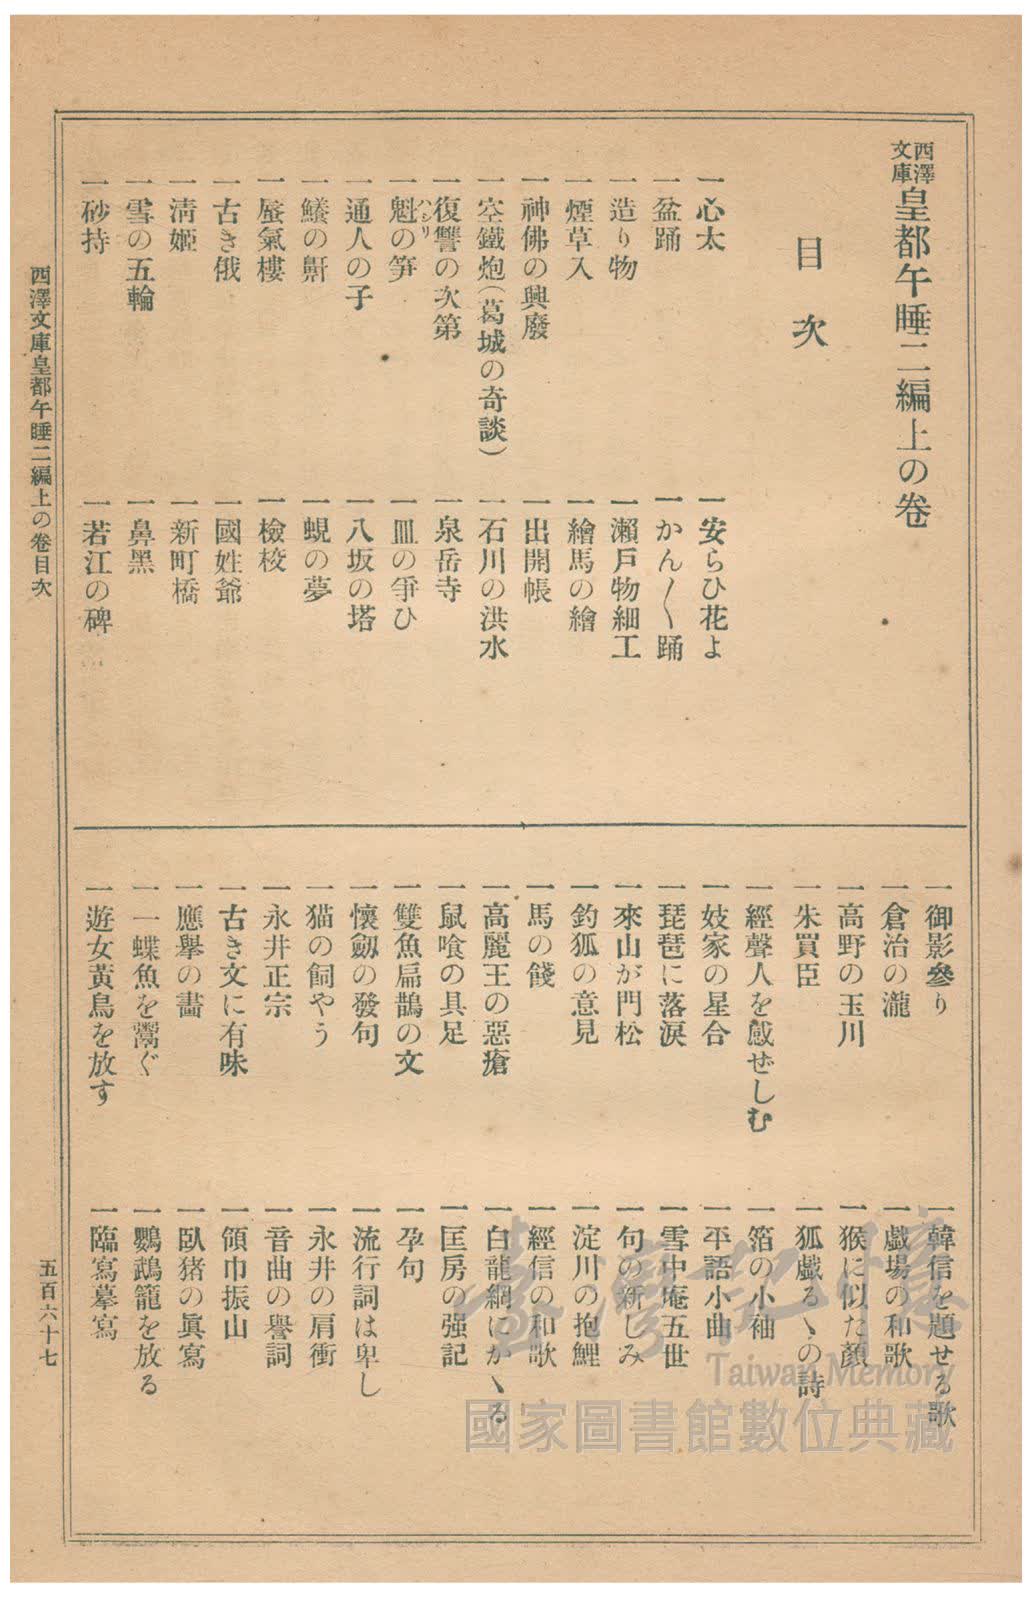 西澤文庫皇都午睡二編上の卷
目次
一心太
一安らひ花よ
一盆踊
一かん〱踊
一造り物
一瀬戸物細工
一煙草入
一繪馬の繪
一神佛の興廢
一出開帳
一空鐵炮(葛城の奇談)
一石川の洪水
一復讐の次第
一泉岳寺
一魁の笋
ハシリ
一皿の爭ひ
一通人の子
一八坂の塔
一鱶の鼾
一蜆の夢
一蜃氣樓
一檢校
一古き俄
一國姓爺
一淸姬
一新町橋
一雪の五輪
一鼻黑
一砂持
一若江の碑
一御影參り
一韓信を題せる歌
一倉治の瀧
一戲場の和歌
一高野の玉川
一猴に似た顏
一朱買臣
一狐戲るゝの詩
一經聲人を感ぜしむ
一箔の小袖
一妓家の星合
一平語小曲
一琵琶に落淚
一雪中庵五世
一來山が門松
一句の新しみ
一釣狐の意見
一淀川の抱鯉
一馬の餞
一經信の和歌
一高麗王の惡瘡
一白龍網にかゝる
一鼠喰の具足
一匡房の强記
一雙魚扁鵲の文
一孕句
一懷劔の發句
一流行詞は卑し
一猫の飼やう
一永井の肩衝
一永井正宗
一音曲の譽詞
一古き文に有味
一領巾振山
一應擧の畵
一臥猪の眞寫
一一蝶魚を鬻ぐ
一鸚鵡籠を放る
一遊女黃鳥を放す
一臨寫摹寫
西澤文庫皇都午睡二編上の卷目次
五百六十七
臺灣記憶
Taiwan Memory
國家圖書館數位典藏